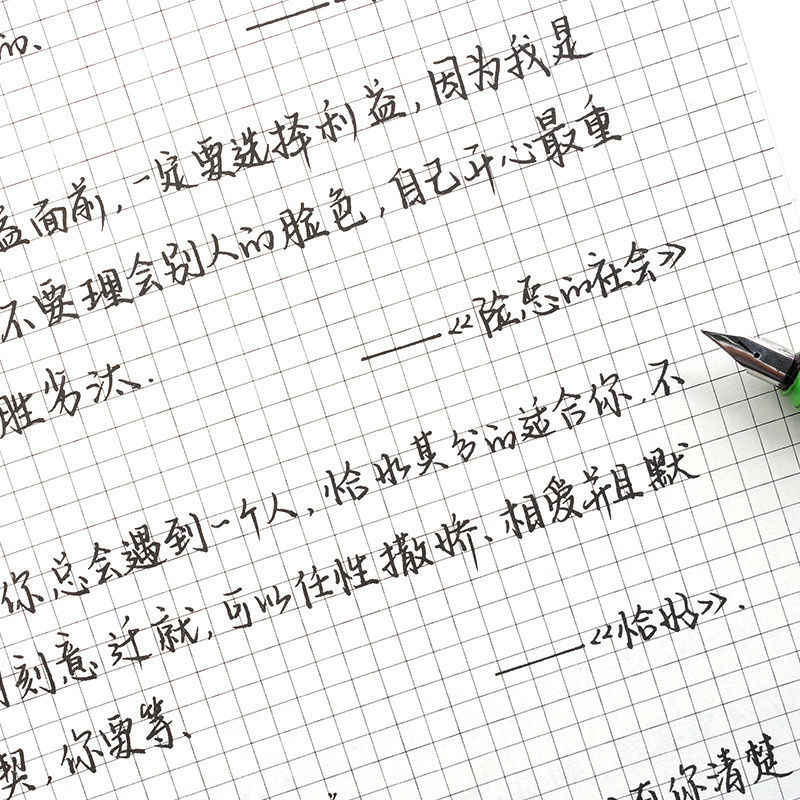 的、
益面前,一定要选择利益,因为我是
不要理会别人的脸色,自己开心最重
胜劣汰.
——《险恶的社会》
你总会遇到一个人,恰如其分的适合你.不
刻意迁就,可以任性撒娇、相爱并且默
契,你要等、
——《恰好》.
有你清楚